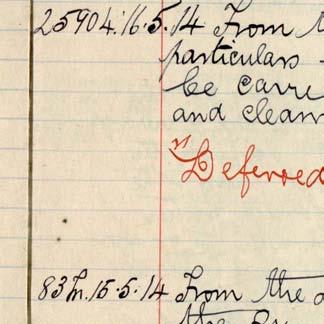 25904. 16.5.14 From
particulars
be carri
and clean
Deferred
83 In. 15.5.14 From the
the